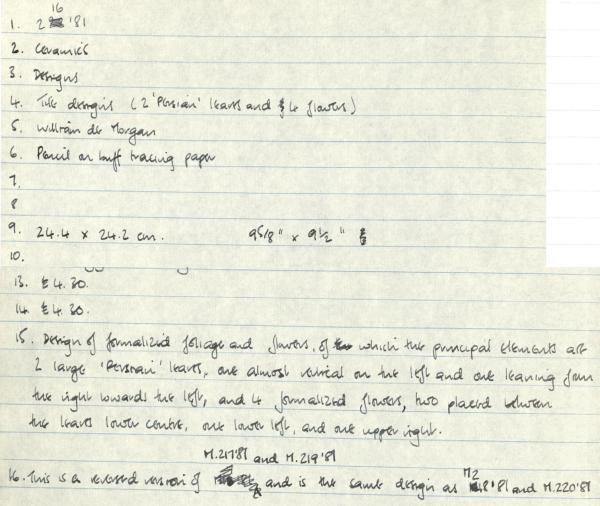 1. 216 '81
2. Ceramics
3. Designs
4. Tile designs (2 'Persian' leaves and 4 flowers)
5. William de Morgan
6. Pencil on buff tracing paper
7.
8
9. 24.4 x 24.2 cm. 9 5/8" x 9 1/2"
10.
13. E4.30.
14. E4.30.
15. Design of formalized foliage and flowers, of which the principal elements are
2 large 'Persian' leaves, one almost vertical on the left and one leaning from
the right towards the left, and 4 formalized flowers, two placed between
the leaves lower centre, one lower left, and one upper right.
M.217'81 and M.219'81
16. This is a reversed version of and is the same design as M218'81 and M.220'81